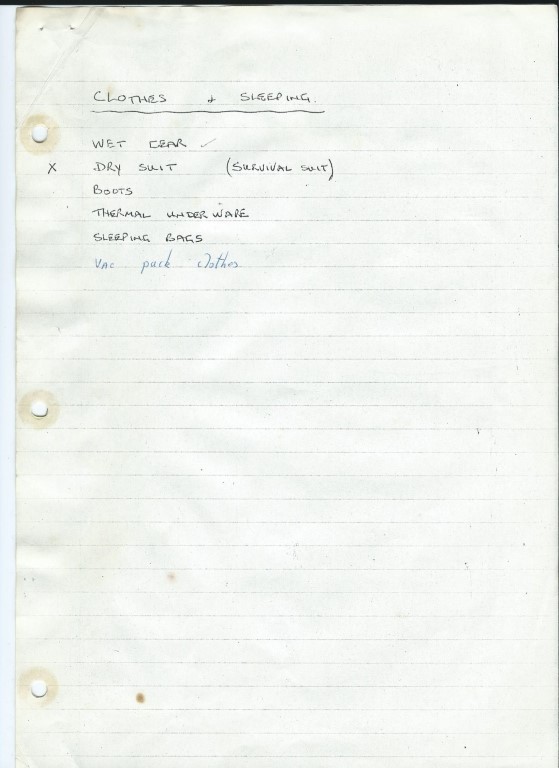 CLOTHES + SLEEPING.
WET GEAR ✓
X DRY SUIT (SURVIVAL SUIT)
BOOTS
THERMAL UNDERWARE
SLEEPING BAGS
Vac pack clothes